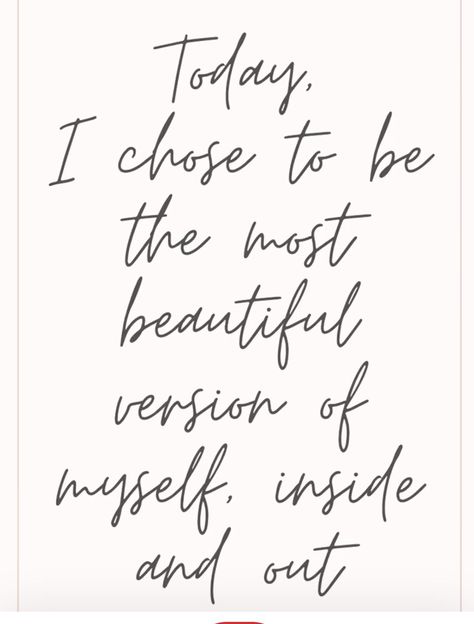 Today,
I chose to be
the most
beautiful
version of
myself, inside
and out